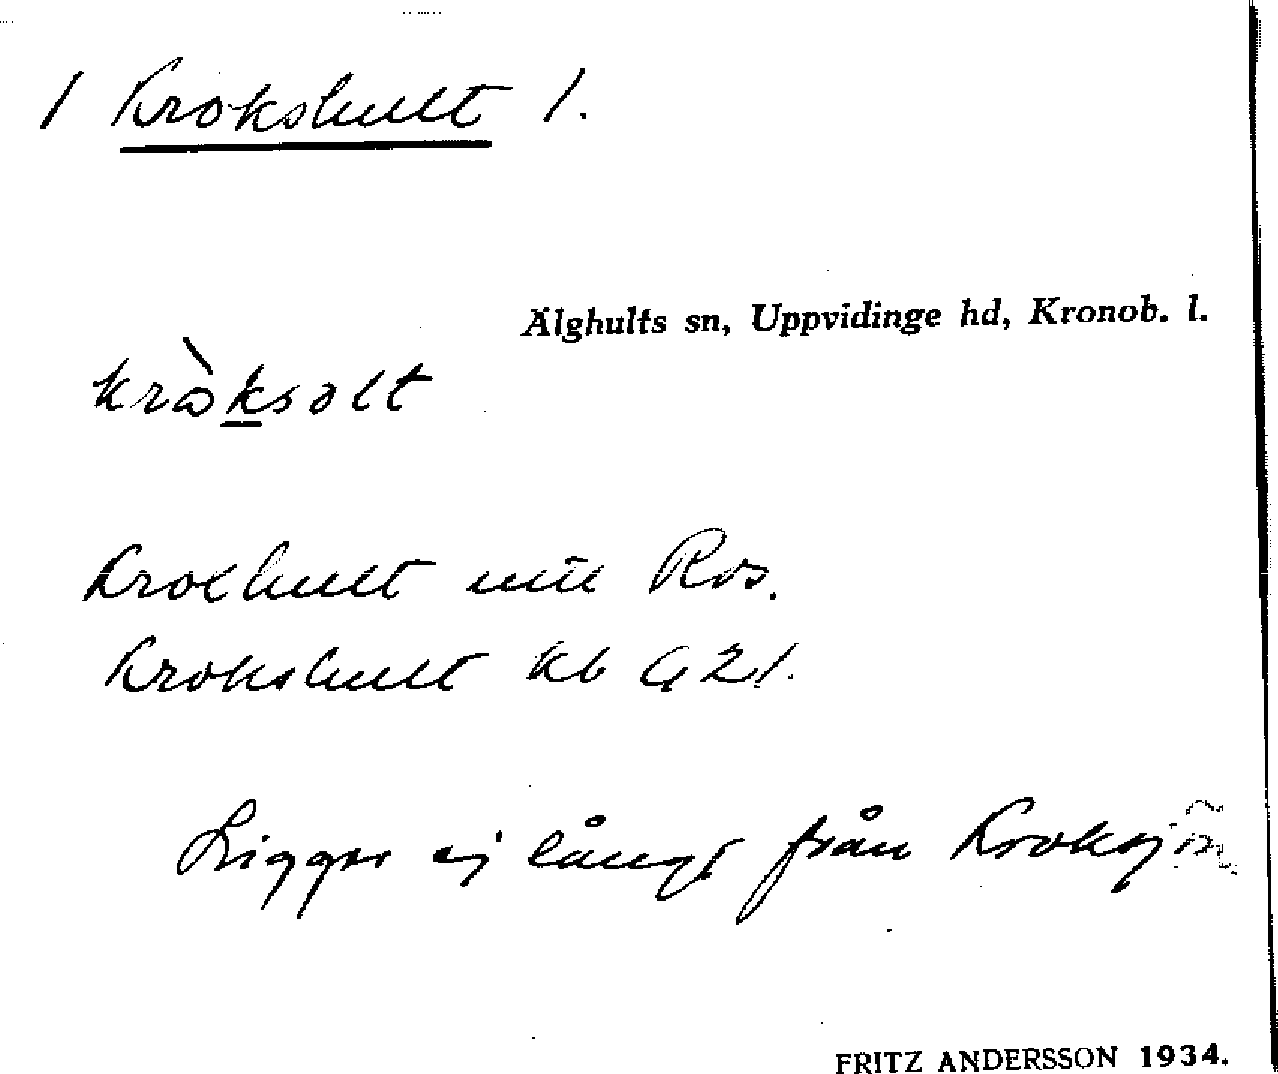 1 Krokshult 1.
Älghults sn, Uppvidinge hd, Kronob. l.
kròksolt
Krokhult Ros.
Krokshult kb 1.
Ligger ej långt från Kroksjön
FRITZ ANDERSSON 1934.